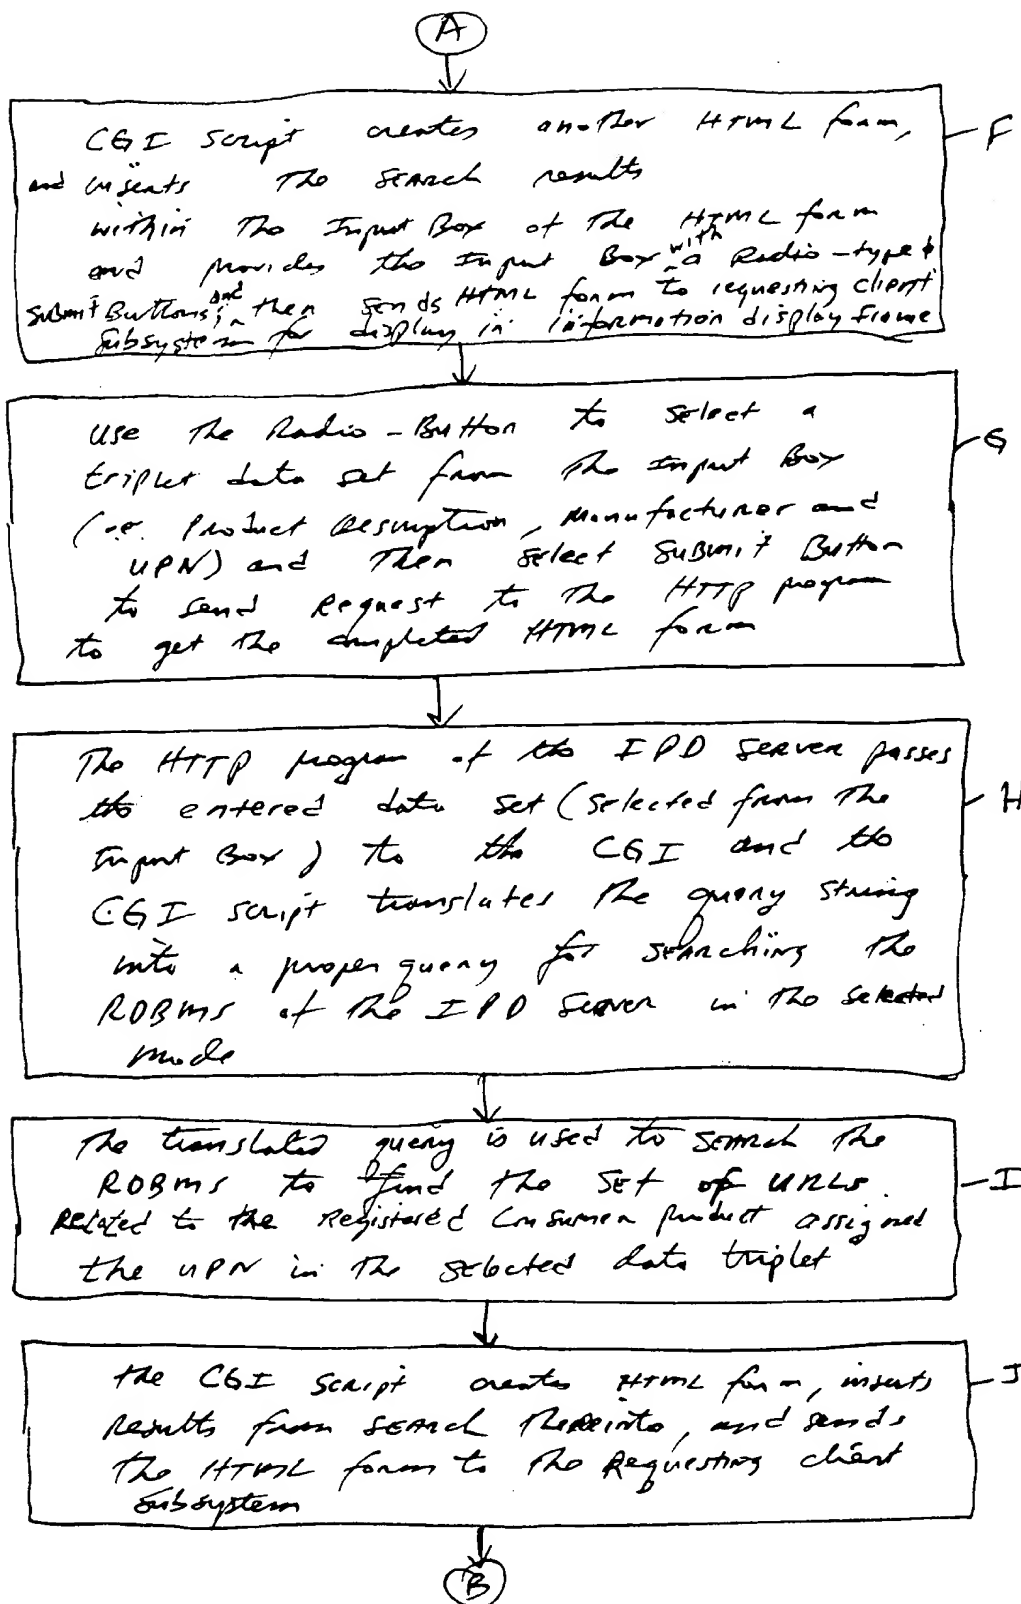 A
CGI Script creates another HTML form,
F
and inserts the SEARCH results
within the Input Box of the HTML form
and provides the Input Box with a Radio-type &
Submit Buttons; and then sends HTML form to requesting client
Subsystem for display in information display frame
use the Radio-Button to select a
G
triplet data set from the Input Box
(i.e. Product Description, Manufacturer and
UPN) and then select Submit Button
to send Request to the HTTP program
to get the completed HTML form
The HTTP program of the IPD Server passes
the entered data set (selected from the
H
Input Box) to the CGI and the
CGI script translates the query string
into a proper query for searching the
RDBMS of the IPD Server in the selected
mode
The translated query is used to SEARCH the
RDBMS to find the SET of URLs
I
Related to the Registered Consumer product assigned
the UPN in the selected data triplet
the CGI Script creates HTML form, inserts
J
Results from SEARCH thereinto, and sends
the HTML form to the Requesting client
Subsystem
B